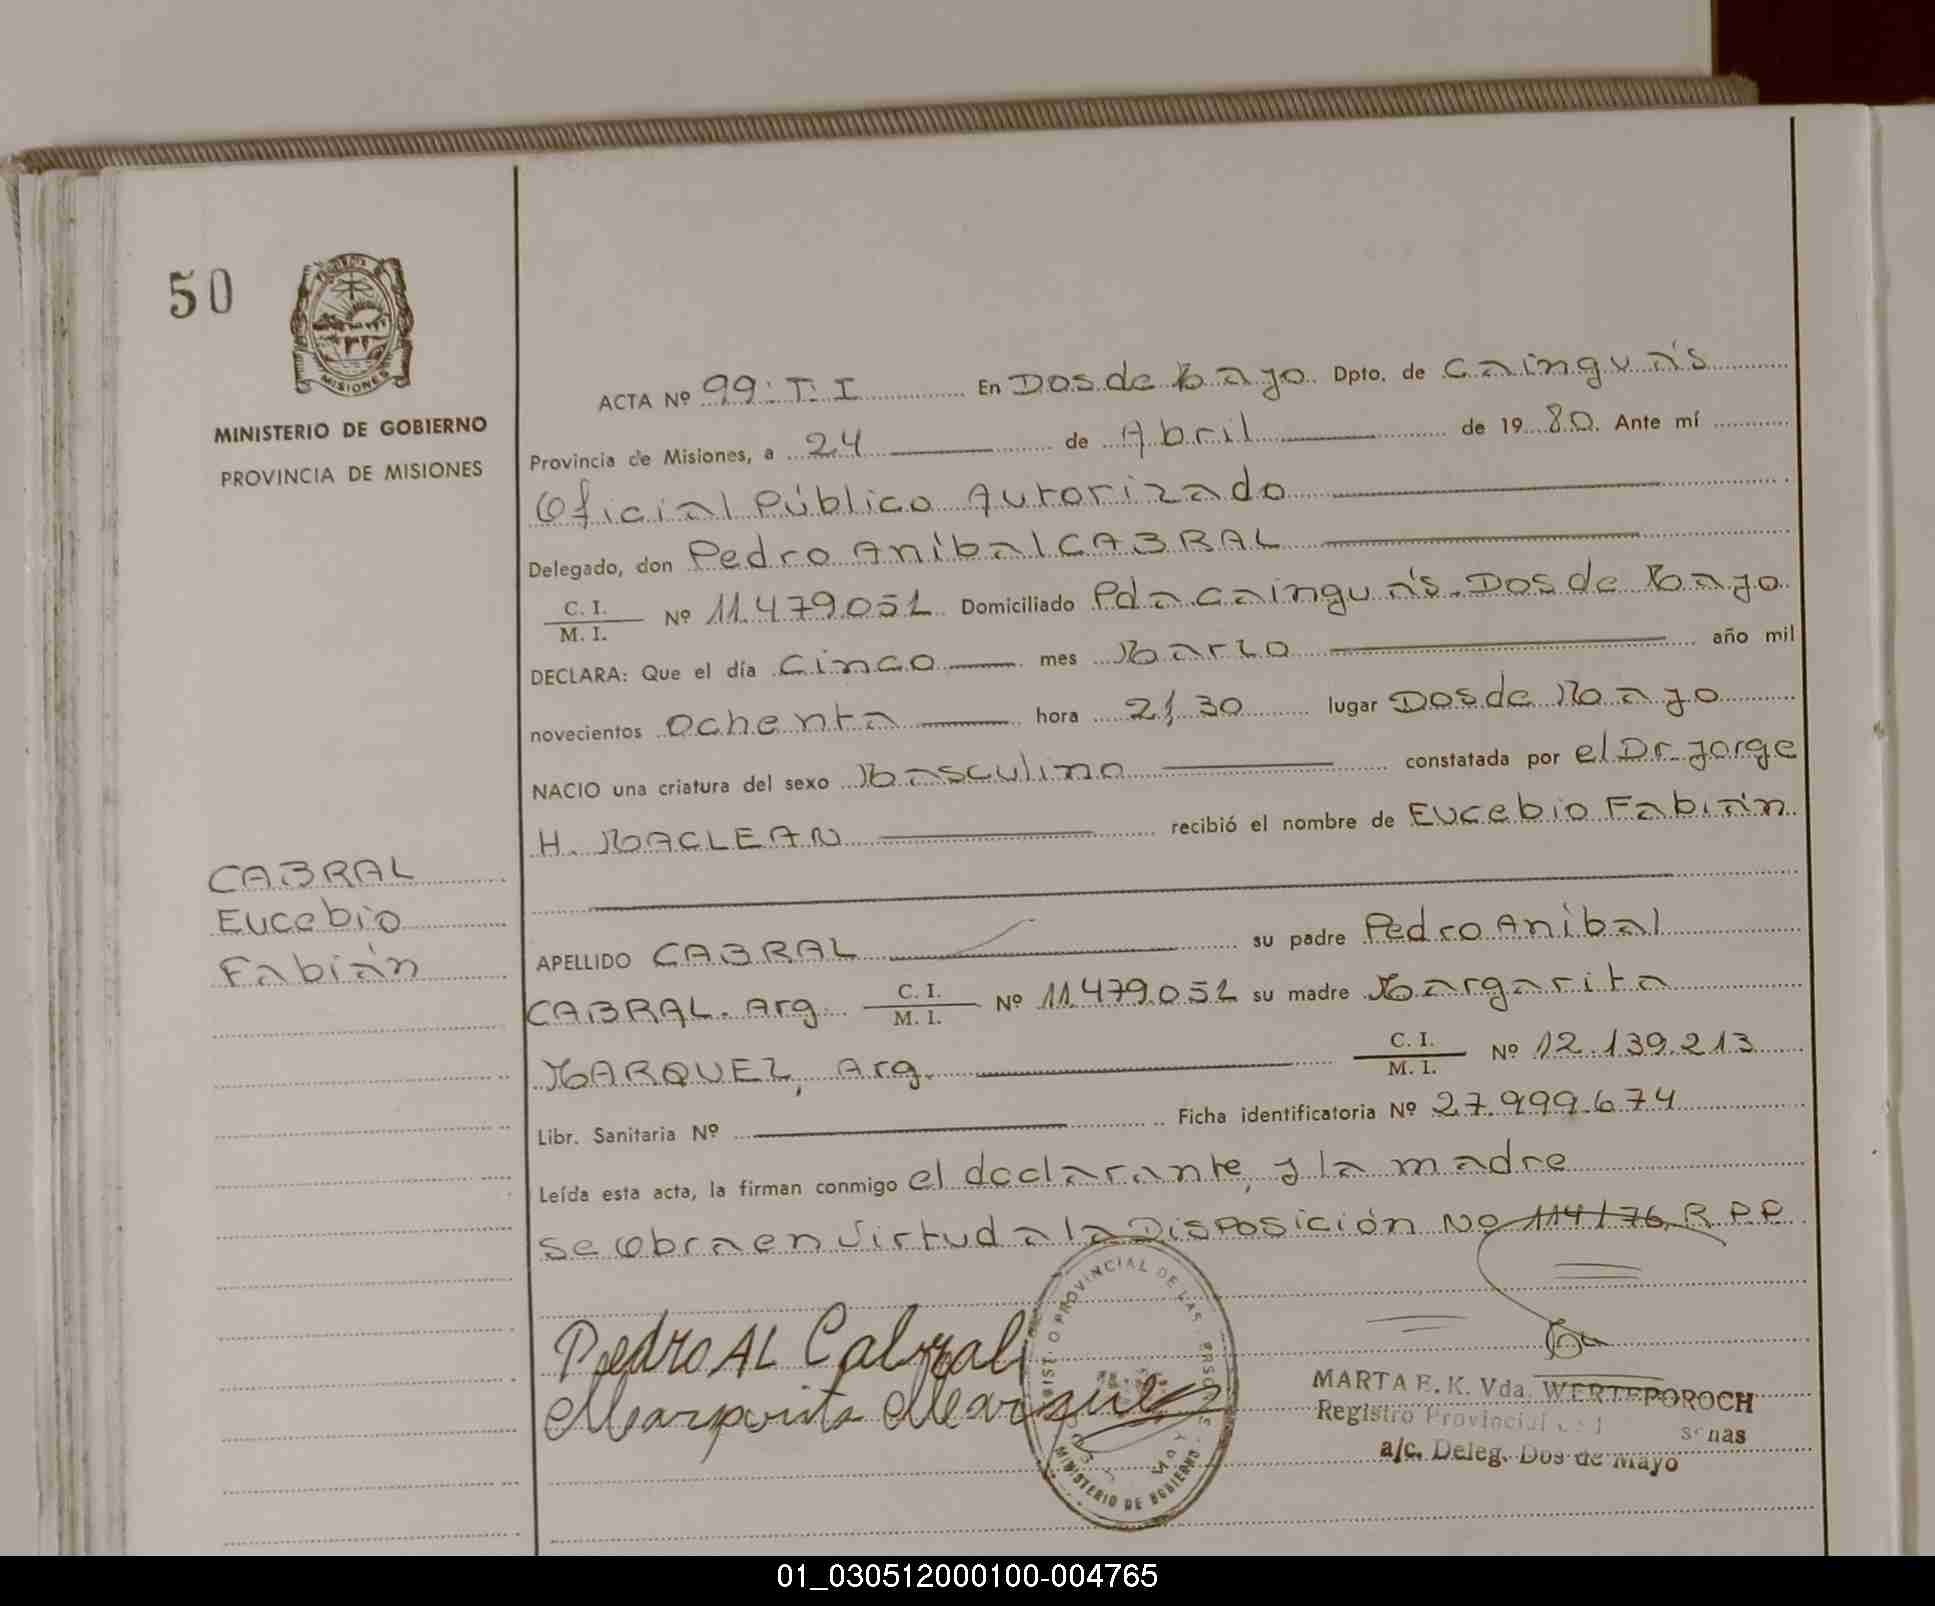 50
PROVINCIA DE
MISIONES
MINISTERIO DE GOBIERNO
PROVINCIA DE MISIONES
CABRAL
Eucebio
Fabián
ACTA Nº 99: T: I En Dos de Mayo Dpto. de Cainguás
Provincia de Misiones, a 24 de Abril de 1980. Ante mí
Oficial Público Autorizado
Delegado, don Pedro Anibal CABRAL
C. I.
M. I. Nº 11.479.051 Domiciliado Pda Cainguás. Dos de Mayo
DECLARA: Que el día cinco mes Marzo año mil
novecientos ochenta hora 21,30 lugar Dos de Mayo
NACIO una criatura del sexo Masculino constatada por el Dr. Jorge
H. MACLEAN recibió el nombre de Eucebio Fabián
APELLIDO CABRAL su padre Pedro Anibal
CABRAL. Arg. C. I. M. I. Nº 11.479.051 su madre Margarita
MARQUEZ, Arg. C. I. M. I. Nº 12.139.213
Libr. Sanitaria Nº Ficha identificatoria Nº 27.999.674
Leída esta acta, la firman conmigo el declarante, y la madre
se obra en Virtud a la Disposición Nº 114/76, R.P.P.
Pedro AL Cabral
Margarita Marquez
PROVINCIAL DE LAS
MINISTERIO DE GOBIERNO
MARTA E. K. Vda. WERTEPOROCH
Registro Provincial
a/c. Deleg. Dos de Mayo
01_030512000100-004765